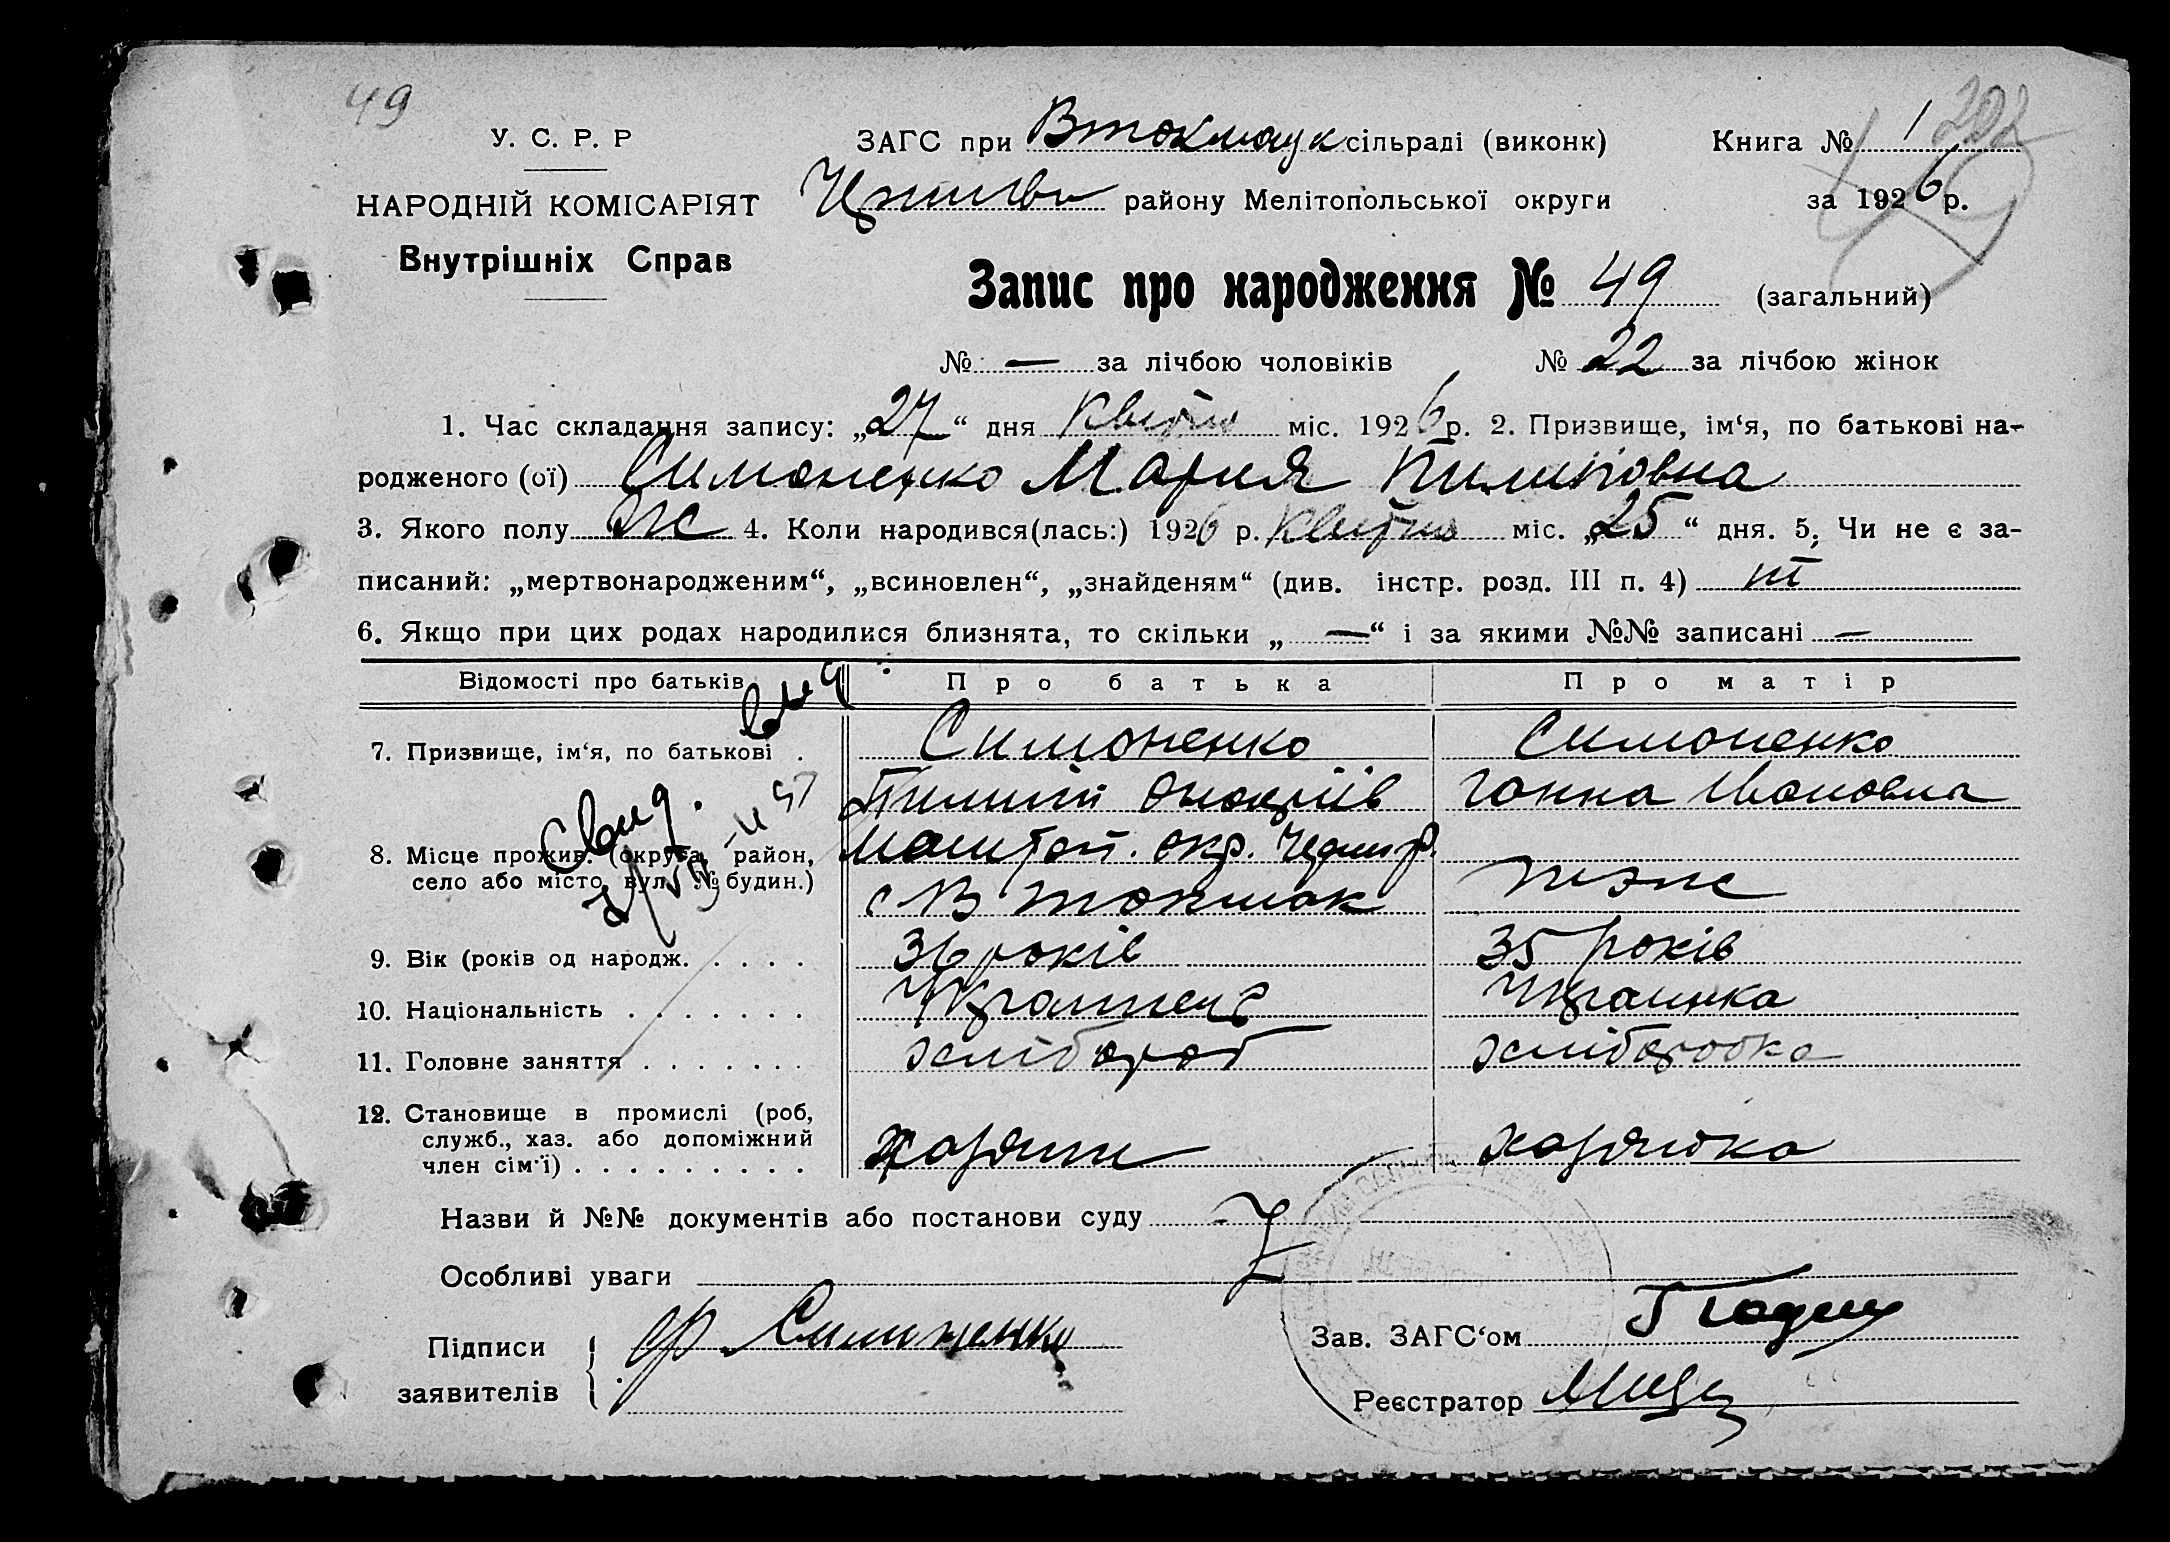 49
У. С. Р. Р
НАРОДНІЙ КОМІСАРІЯТ
Внутрішніх Справ
ЗАГС при Втокмацк сільраді (виконк)
району Мелітопольської округи
Книга № 1
за 1926 р.
Запис про народження № 49 (загальний)
№ — за лічбою чоловіків № 22 за лічбою жінок
1. Час складання запису: „27“ дня Квітня міс. 1926 р. 2. Призвище, ім‘я, по батькові на-
родженого (ої) Симоненко Мария Пилиповна
3. Якого полу Ж 4. Коли народився(лась:) 1926 р. Квітня міс. „25“ дня. 5. Чи не є за-
писаний: „мертвонародженим“, „всиновлен“, „знайденям“ (див. інстр. розд. III п. 4) ні
6. Якщо при цих родах народилися близнята, то скільки „—“ і за якими №№ записані —
Відомості про батьків Про батька Про матір
7. Призвище, ім‘я, по батькові . Симоненко Симоненко
Пилип Ганна Ивановна
8. Місце прожив. (округа, район,
село або місто, вул. № будин.)
Меліт. окр.
с В Токмак теж
Свид.
9. Вік (років од народж. . . . . 36 років 35 років
10. Національність . . . . . . . Украинец Украинка
11. Головне заняття . . . . . . . хлібороб хліборобка
12. Становище в промислі (роб,
служб., хаз. або допоміжний
член сім‘ї) . . . . . . . . . хазяин хазяйка
Назви й №№ документів або постанови суду
Особливі уваги
Підписи
заявителів
Ф Симоненко
Зав. ЗАГС‘ом
Реєстратор